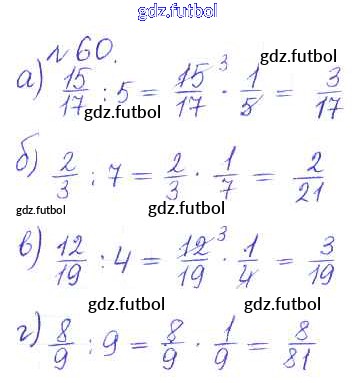 gdz.futbol
№60.
gdz.futbol
а) 15/17 : 5 = 15/17 ³ · 1/5 = 3/17
gdz.futbol gdz.futbol
б) 2/3 : 7 = 2/3 · 1/7 = 2/21
gdz.futbol gdz.futbol
в) 12/19 : 4 = 12/19 ³ · 1/4 = 3/19
gdz.futbol gdz.futbol
г) 8/9 : 9 = 8/9 · 1/9 = 8/81
gdz.futbol